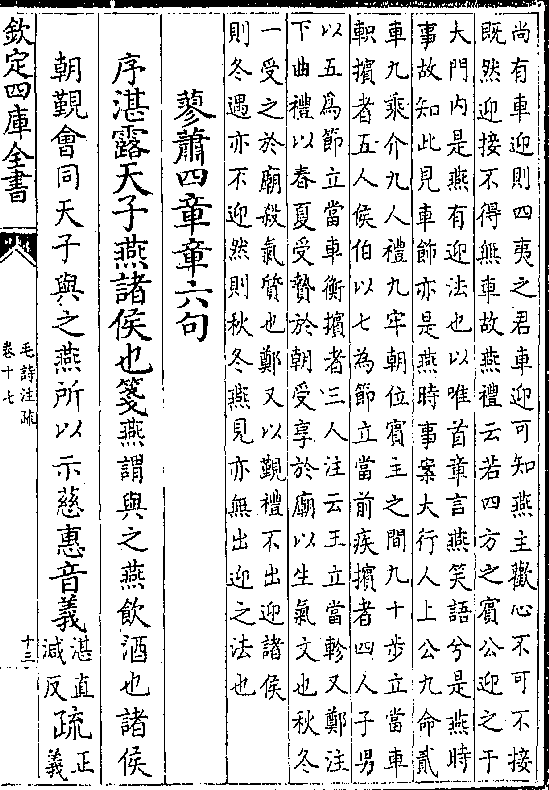 尚有車迎則四夷之君車迎可知燕主歡心不可不接
既然迎接不得無車故燕禮云若四方之賓公迎之于
大門内是燕有迎法也以唯首章言燕笑語兮是燕時
事故知此見車飾亦是燕時事案大行人上公九命貳
車九乘介九人禮九牢朝位賓主之間九十步立當車
軹擯者五人侯伯以七為節立當前疾擯者四人子男
以五為節立當車衡擯者三人注云王立當軫又鄭注
下曲禮以春夏受贄於朝受享於廟以生氣文也秋冬
一受之於廟殺氣質也鄭又以覲禮不出迎諸侯
則冬遇亦不迎然則秋冬燕見亦無出迎之法也
蓼蕭四章章六句
序湛露天子燕諸侯也箋燕謂與之燕飲酒也諸侯
朝覲會同天子與之燕所以示慈惠音義湛直減反疏正義
欽定四庫全書
毛詩注疏
卷十七
十三